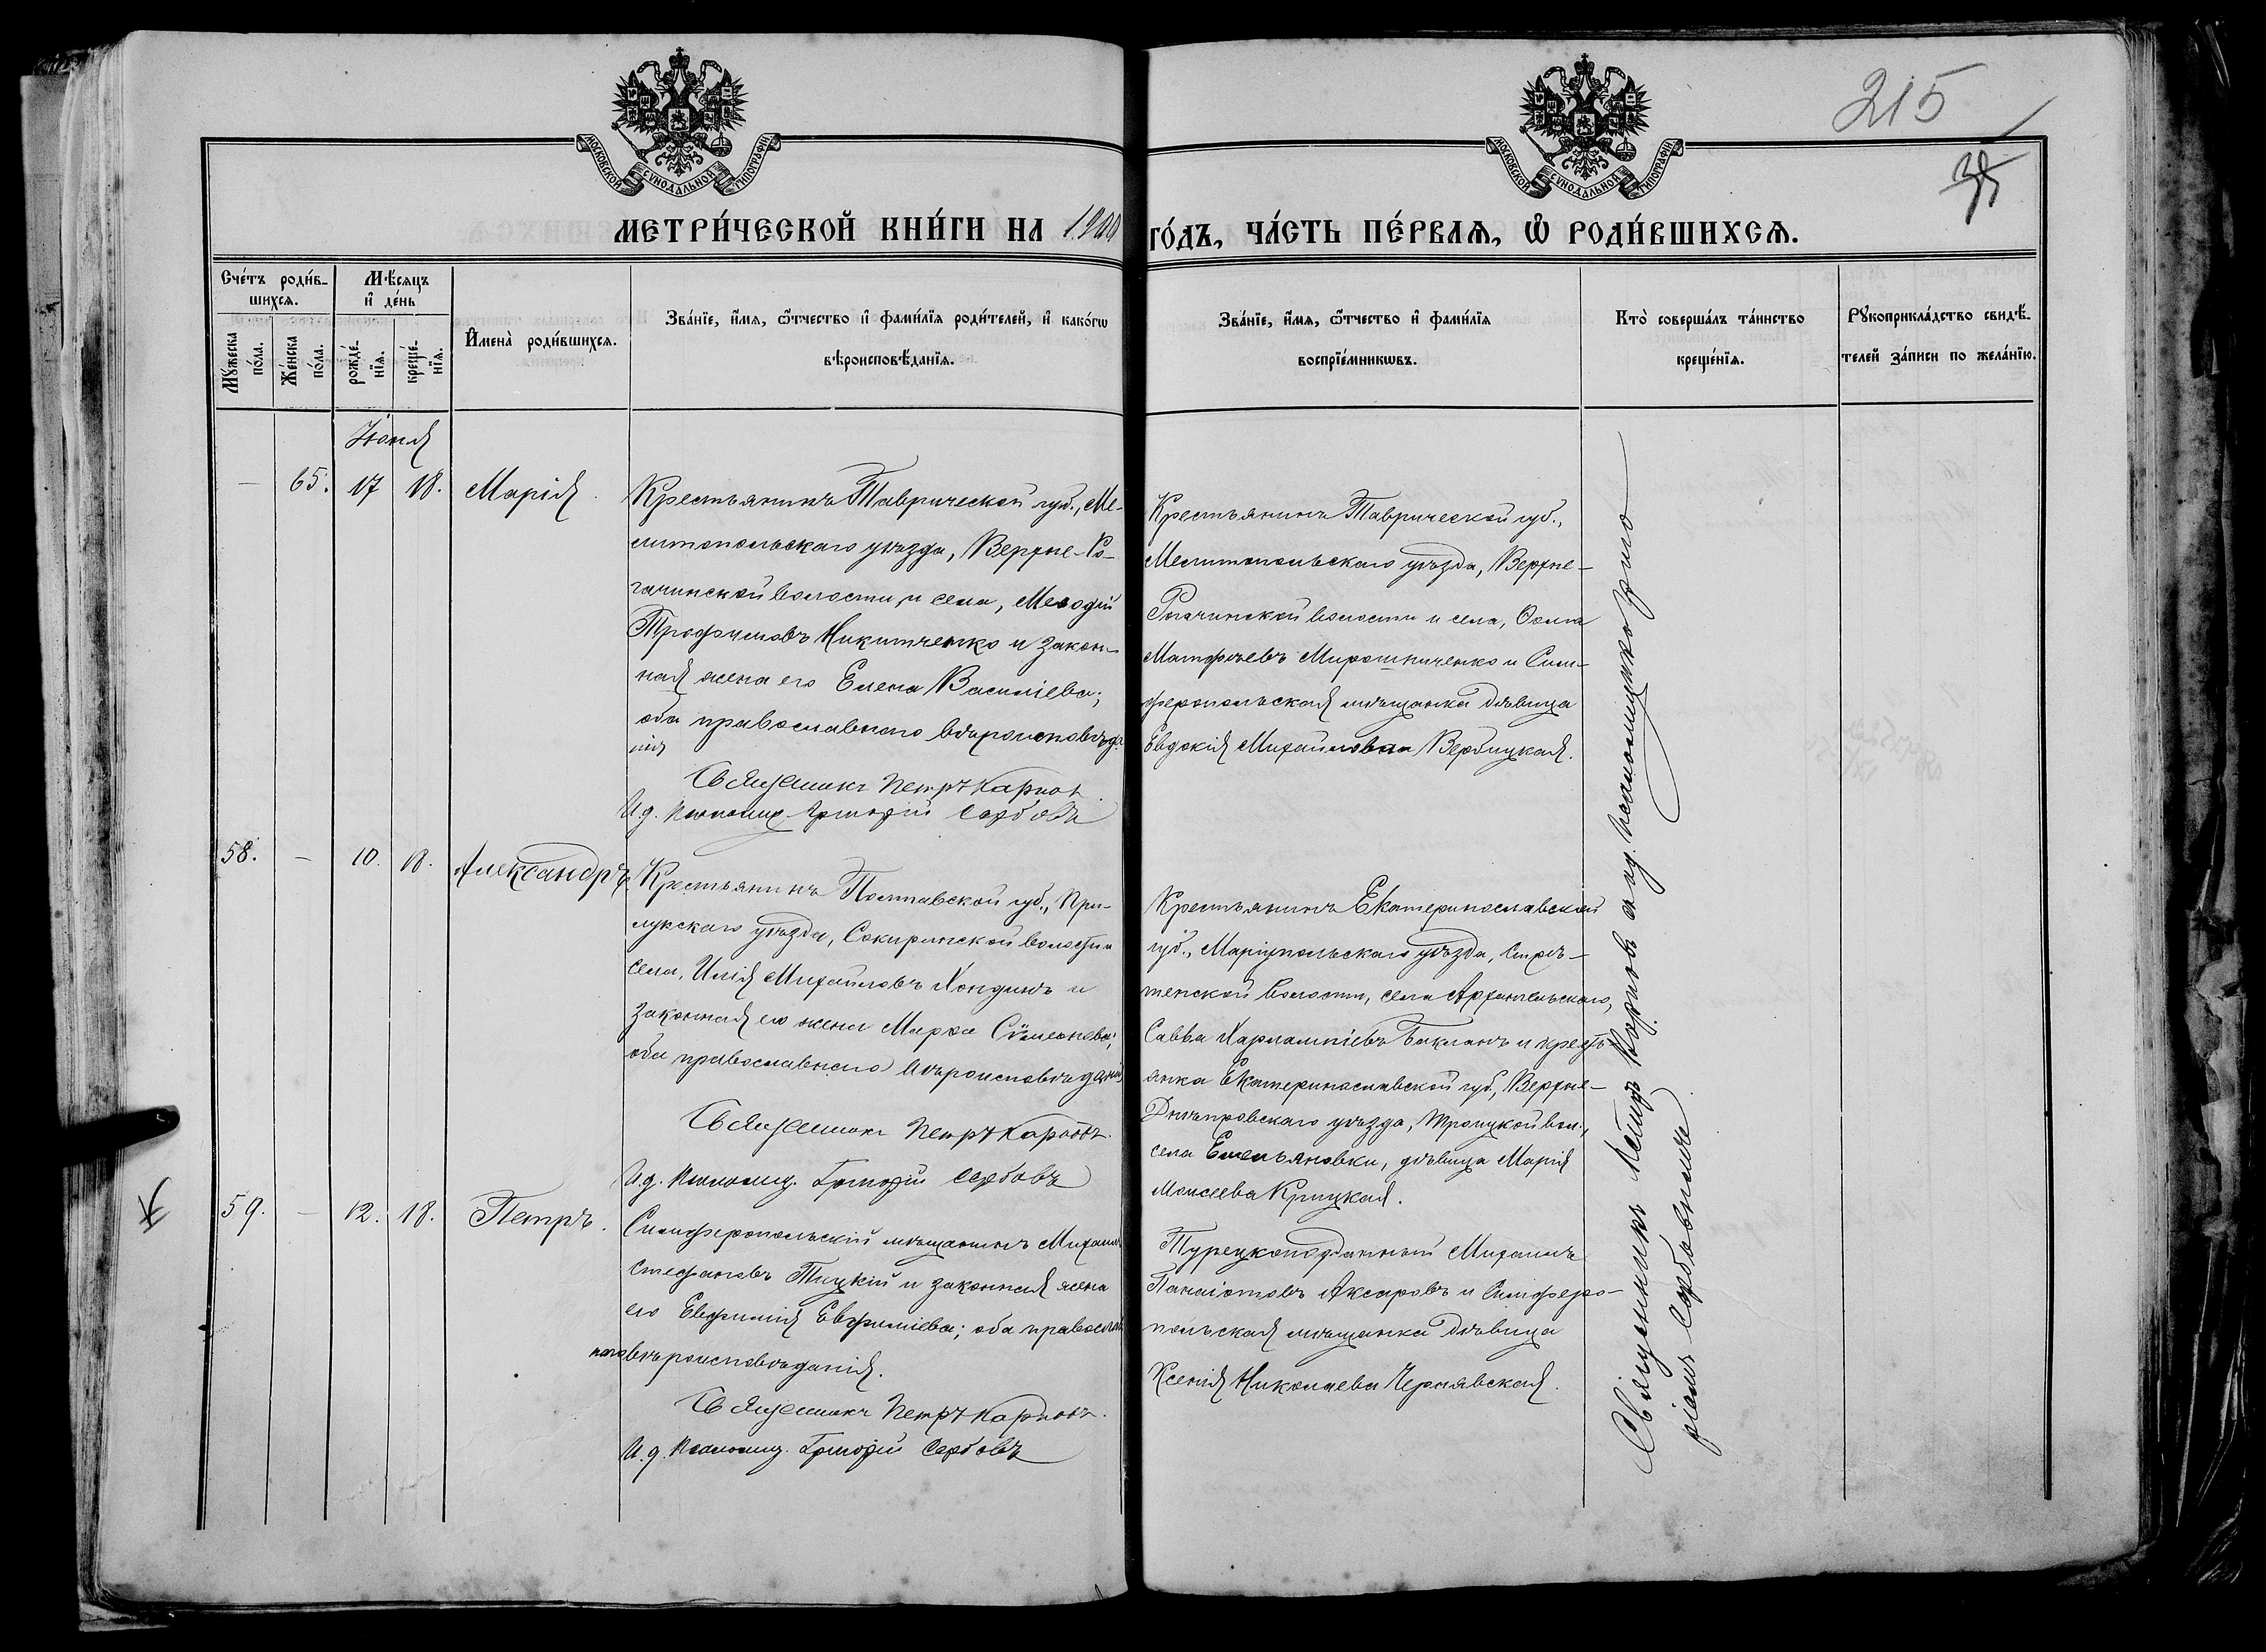 215
35
МОСКОВСКОЙ СѴНОДАЛЬНОЙ ТИПОГРАФІИ
МОСКОВСКОЙ СѴНОДАЛЬНОЙ ТИПОГРАФІИ
МЕТРИ́ЧЕСКОЙ КНИ́ГИ НА 1900 ГО́ДЪ, ЧА́СТЬ ПЕ́РВАѦ, Ѡ РОДИ́ВШИХСѦ.
Сче́тъ роди́в-
шихсѧ.
Мꙋ́жеска по́ла.
Же́нска по́ла.
Мѣ́сѧцъ
и҆ де́нь
рожде́-
нїѧ.
креще́-
нїѧ.
И҆мена̀ роди́вшихсѧ.
Зва́нїе, и҆́мѧ, ѻ҆́тчество и҆ фами́лїѧ роди́телей, и҆ како́гѡ
вѣроисповѣ́данїѧ.
Зва́нїе, и҆́мѧ, ѻ҆́тчество и҆ фами́лїѧ
воспрїе́мникѡвъ.
Кто̀ соверша́лъ та́инство
креще́нїѧ.
Рꙋкоприкла́дство свидѣ́-
телей за́писи по жела́нїю.
Іюня
— 65. 17 18. Марія.
Крестьянинъ Таврической губ., Ме-
литопольскаго уѣзда, Верхне-Ро-
гачинской волости и села, Меѳодій
Трофимовъ Никитченко и закон-
ная жена его Елена Василіева;
оба православнаго вѣроисповѣда
нія
Священникъ Петръ Карпов
И.д. Псаломщ. Григорій Сербовъ
Крестьянинъ Таврической губ.,
Мелитопольскаго уѣзда, Верхне-
Рогачинской волости и села, Ѳома
Матфѣевъ Мирошниченко и Сим-
феропольская мѣщанка дѣвица
Евдокія Михайлова Вербицкая.
58. — 10. 18. Александръ
Крестьянинъ Полтавской губ., При-
лукскаго уѣзда, Сокиринской волости и
села, Илія Михайловъ Хондинъ и
законная его жена Марѳа Сѵмеонова;
оба православнаго вѣроисповѣданія
Священникъ Петръ Карповъ.
И.д. Псаломщ. Григорій Сербовъ
Крестьянинъ Екатеринославской
губ., Маріупольскаго уѣзда,
волости, села Архангельскаго,
Савва Харлампіевъ Бакланъ и кресть
янка Екатеринославской губ., Верхне-
Днѣпровскаго уѣзда, Троицкой вол.,
села Емельяновки, дѣвица Марія
Моисеева Крицкая.
59. — 12. 18. Петръ.
Симферопольскій мѣщанинъ Михаилъ
Стефановъ Тицкій и законная жена
его Евфимія Евфиміева; оба православ
наго вѣроисповѣданія.
Священникъ Петръ Карповъ.
И.д. Псаломщ. Григорій Сербовъ
Турецкоподданный Михаилъ
Панаіотовъ Аксаровъ и Симферо-
польская мѣщанка дѣвица
Ксенія Николаева Чернявская.
Священникъ Петръ Карповъ съ и.д. псаломщика Григо
ріемъ Сербовымъ